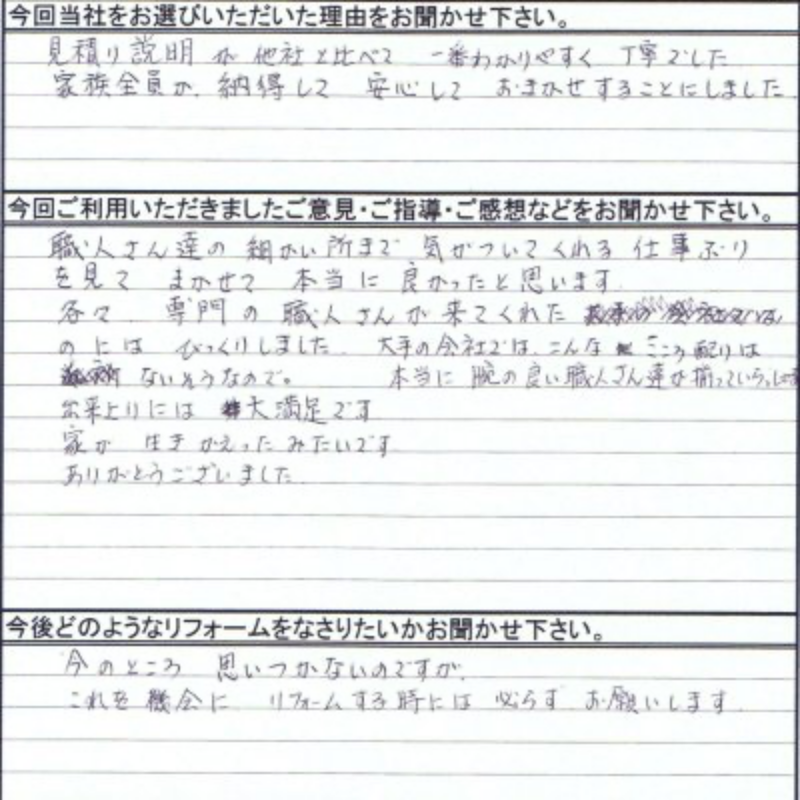 今回当社をお選びいただいた理由をお聞かせ下さい。
見積り説明が他社と比べて 一番わかりやすく 丁寧でした
家族全員が、納得して 安心して おまかせすることにしました
今回ご利用いただきましたご意見・ご指導・ご感想などをお聞かせ下さい。
職人さん達の 細かい所まで 気がついてくれる 仕事ぶり
を見て まかせて 本当に 良かったと思います
各々、専門の職人さんが来てくれた
のには びっくりしました。 大手の会社では、こんな こころ配りは
ないそうなので。 本当に 腕の良い職人さん達が揃っていらっしゃ
出来上りには 大満足です
家が 生きかえったみたいです
ありがとうございました
今後どのようなリフォームをなさりたいかお聞かせ下さい。
今のところ 思いつかないのですが、
これを機会に リフォームする時には 必らず お願いします